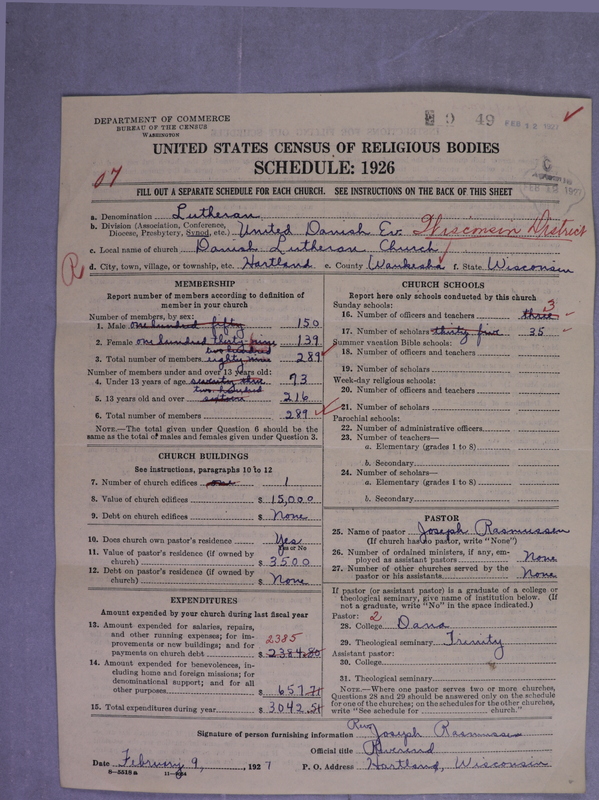 DEPARTMENT OF COMMERCE
BUREAU OF THE CENSUS
WASHINGTON
9 49 FEB 12 1927
UNITED STATES CENSUS OF RELIGIOUS BODIES
SCHEDULE: 1926
07
FILL OUT A SEPARATE SCHEDULE FOR EACH CHURCH. SEE INSTRUCTIONS ON THE BACK OF THIS SHEET
a. Denomination Lutheran
b. Division (Association, Conference, Diocese, Presbytery, Synod, etc.) United Danish Ev. Wisconsin District
c. Local name of church Danish Lutheran Church
R
d. City, town, village, or township, etc. Hartland e. County Waukesha f. State Wisconsin
MEMBERSHIP
Report number of members according to definition of
member in your church
Number of members, by sex:
1. Male one hundred fifty 150
2. Female one hundred thirty nine 139
3. Total number of members two hundred eighty nine 289
Number of members under and over 13 years old:
4. Under 13 years of age seventy three 73
5. 13 years old and over two hundred sixteen 216
6. Total number of members 289
NOTE.—The total given under Question 6 should be the
same as the total of males and females given under Question 3.
CHURCH BUILDINGS
See instructions, paragraphs 10 to 12
7. Number of church edifices one 1
8. Value of church edifices $ 15,000
9. Debt on church edifices $ None
10. Does church own pastor's residence? Yes
Yes or No
11. Value of pastor's residence (if owned by
church) $ 3500
12. Debt on pastor's residence (if owned by
church) $ None
EXPENDITURES
Amount expended by your church during last fiscal year
13. Amount expended for salaries, repairs,
and other running expenses; for im-
provements or new buildings; and for
payments on church debt $ 2384.80
2385
14. Amount expended for benevolences,
including home and foreign missions; for
denominational support; and for all
other purposes $ 657.71
15. Total expenditures during year $ 3042.51
CHURCH SCHOOLS
Report here only schools conducted by this church
Sunday schools:
16. Number of officers and teachers three 3
17. Number of scholars thirty five 35
Summer vacation Bible schools:
18. Number of officers and teachers
19. Number of scholars
Week-day religious schools:
20. Number of officers and teachers
21. Number of scholars
Parochial schools:
22. Number of administrative officers
23. Number of teachers—
a. Elementary (grades 1 to 8)
b. Secondary
24. Number of scholars—
a. Elementary (grades 1 to 8)
b. Secondary
PASTOR
25. Name of pastor Joseph Rasmussen
(If church has no pastor, write "None")
26. Number of ordained ministers, if any, em-
ployed as assistant pastors None
27. Number of other churches served by the
pastor or his assistants None
If pastor (or assistant pastor) is a graduate of a college or
theological seminary, give name of institution below. (If
not a graduate, write "No" in the space indicated.)
Pastor: 2
28. College Dana
29. Theological seminary Trinity
Assistant pastor:
30. College
31. Theological seminary
NOTE.—Where one pastor serves two or more churches,
Questions 28 and 29 should be answered only on the schedule
for one of the churches; on the schedules for the other churches,
write "See schedule for church."
Signature of person furnishing information Rev. Joseph Rasmussen
Official title Reverend
Date February 9, 1927 P. O. Address Hartland, Wisconsin
8—5518a 11—9364